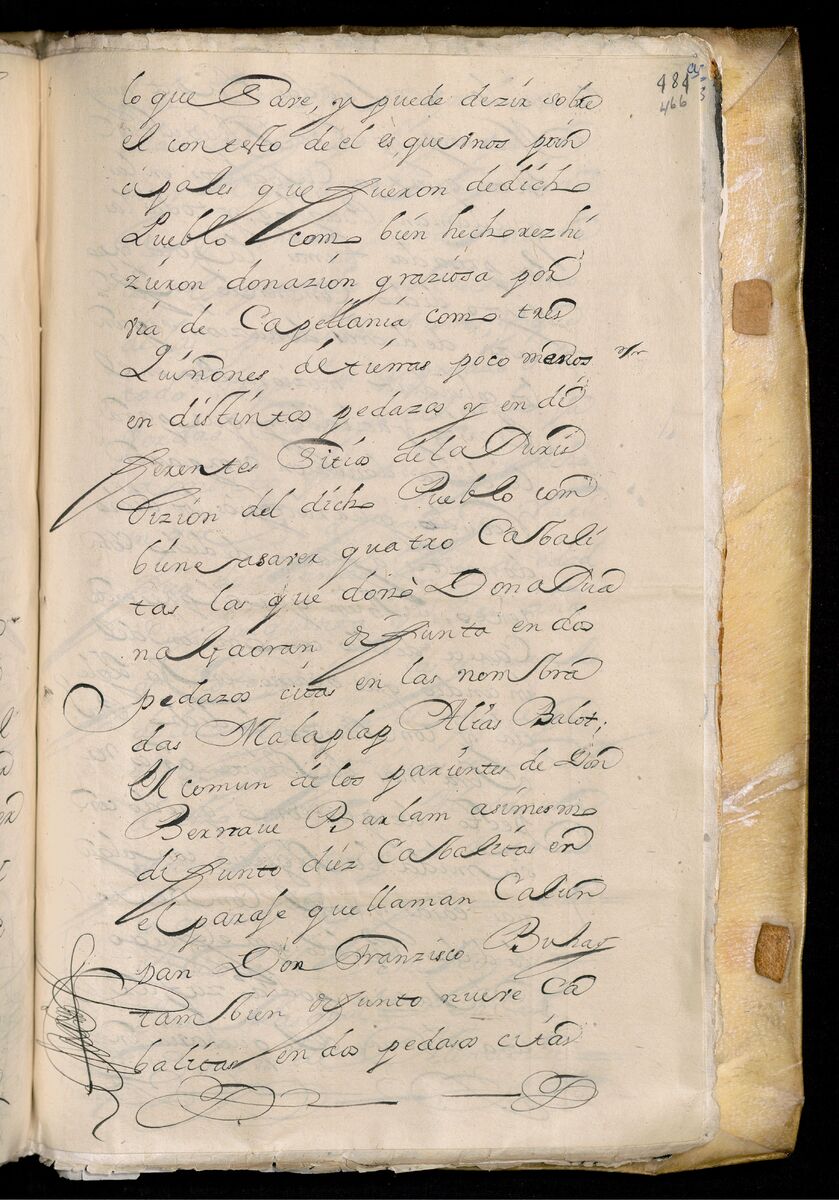 484
466
lo que Save, y puede dezir sobre
el contesto de el es que unos prin
cipales que fueron de dicho
Pueblo como bien hechorez hi
zieron donazion graziosa por
via de Capellania como tres
Quiñones de tierras poco menos
en distintos pedazos y en di
ferentes Sitios de la Juris
dizion del dicho Pueblo com
biene asaver quatro Cabali
tas las que donò Dona Jua
na Gaoran difunta en dos
pedazos citas en las nombra
das Malaplap Alias Balot;
El comun de los parientes de Don
Bernave Barlam asimesmo
difunto diez Cabalitas en
el paraje que llaman Calun
pan Don Franzisco Buhay
tambien difunto nueve Ca
balitas en dos pedasos citas